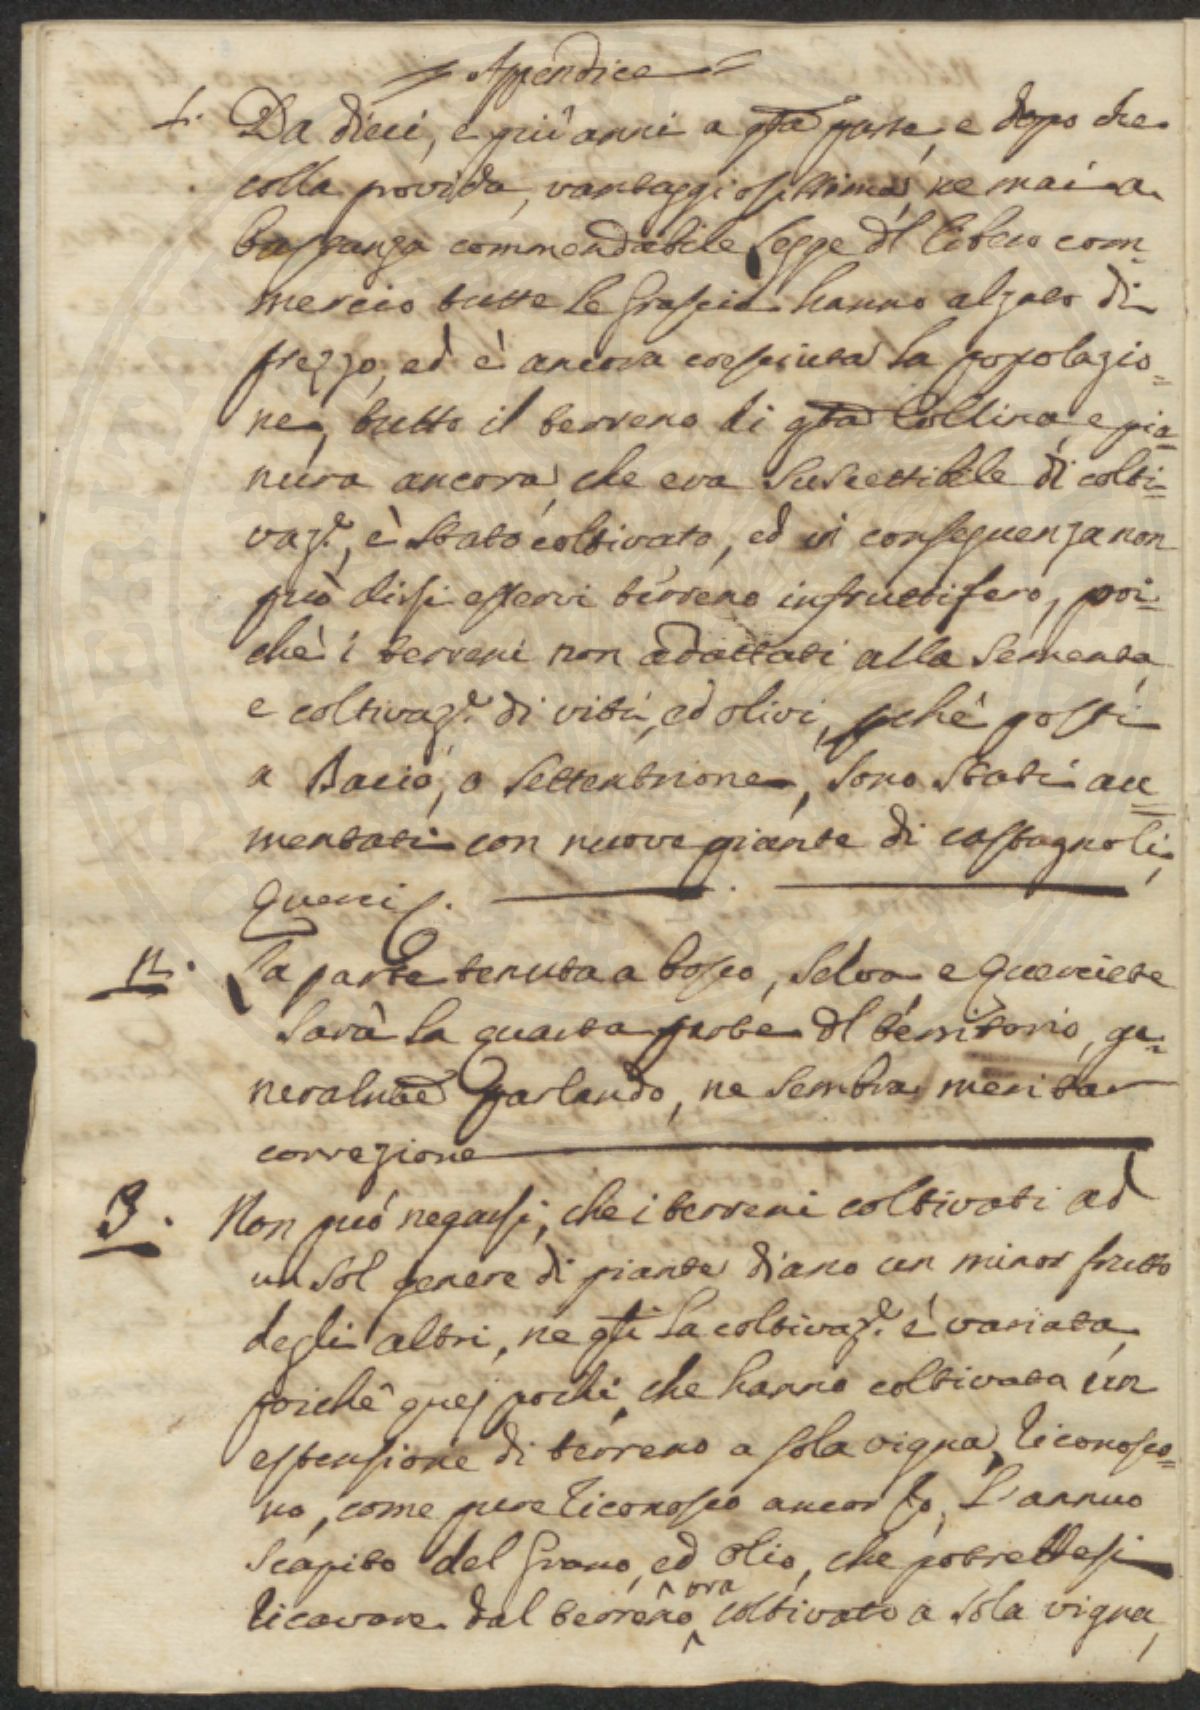 Appendice
1. Da dieci, e più anni a qta parte, e dopo che
colla provida, vantaggiosissima, ne mai a
bastanza commendabile Legge dl libero com=
mercio tutte le Grascie hanno alzato di
prezzo, ed è ancora cresciuta la popolazio=
ne, tutto il terreno di qta Collina, e pia=
nura ancora, che era suscettibile di colti=
vaze, è stato coltivato, ed in conseguenza non
può dirsi esservi terreno infruttifero, poi=
chè i terreni non adattati alla sementa
e coltivaze di viti, ed olivi, pchè posti
a Bacio, o Settentrione, sono stati au=
mentati con nuove piante di castagnoli,
Querci
2. La parte tenuta a bosco, selva e Querciete
sarà la quarta parte dl territorio, ge=
neralmte parlando, ne sembra meritar
correzione
3. Non può negarsi, che i terreni coltivati ad
un sol genere di piante diano un minor frutto
degli altri, ne qti la coltivaze è variata,
poichè quei pochi, che hanno coltivata un
estensione di terreno a sola vigna, riconosco=
no, come pure riconosco ancor Io, L'annuo
scapito del Grano, ed olio, che potrebbesi
ricavare dal terreno ora coltivato a sola vigna,